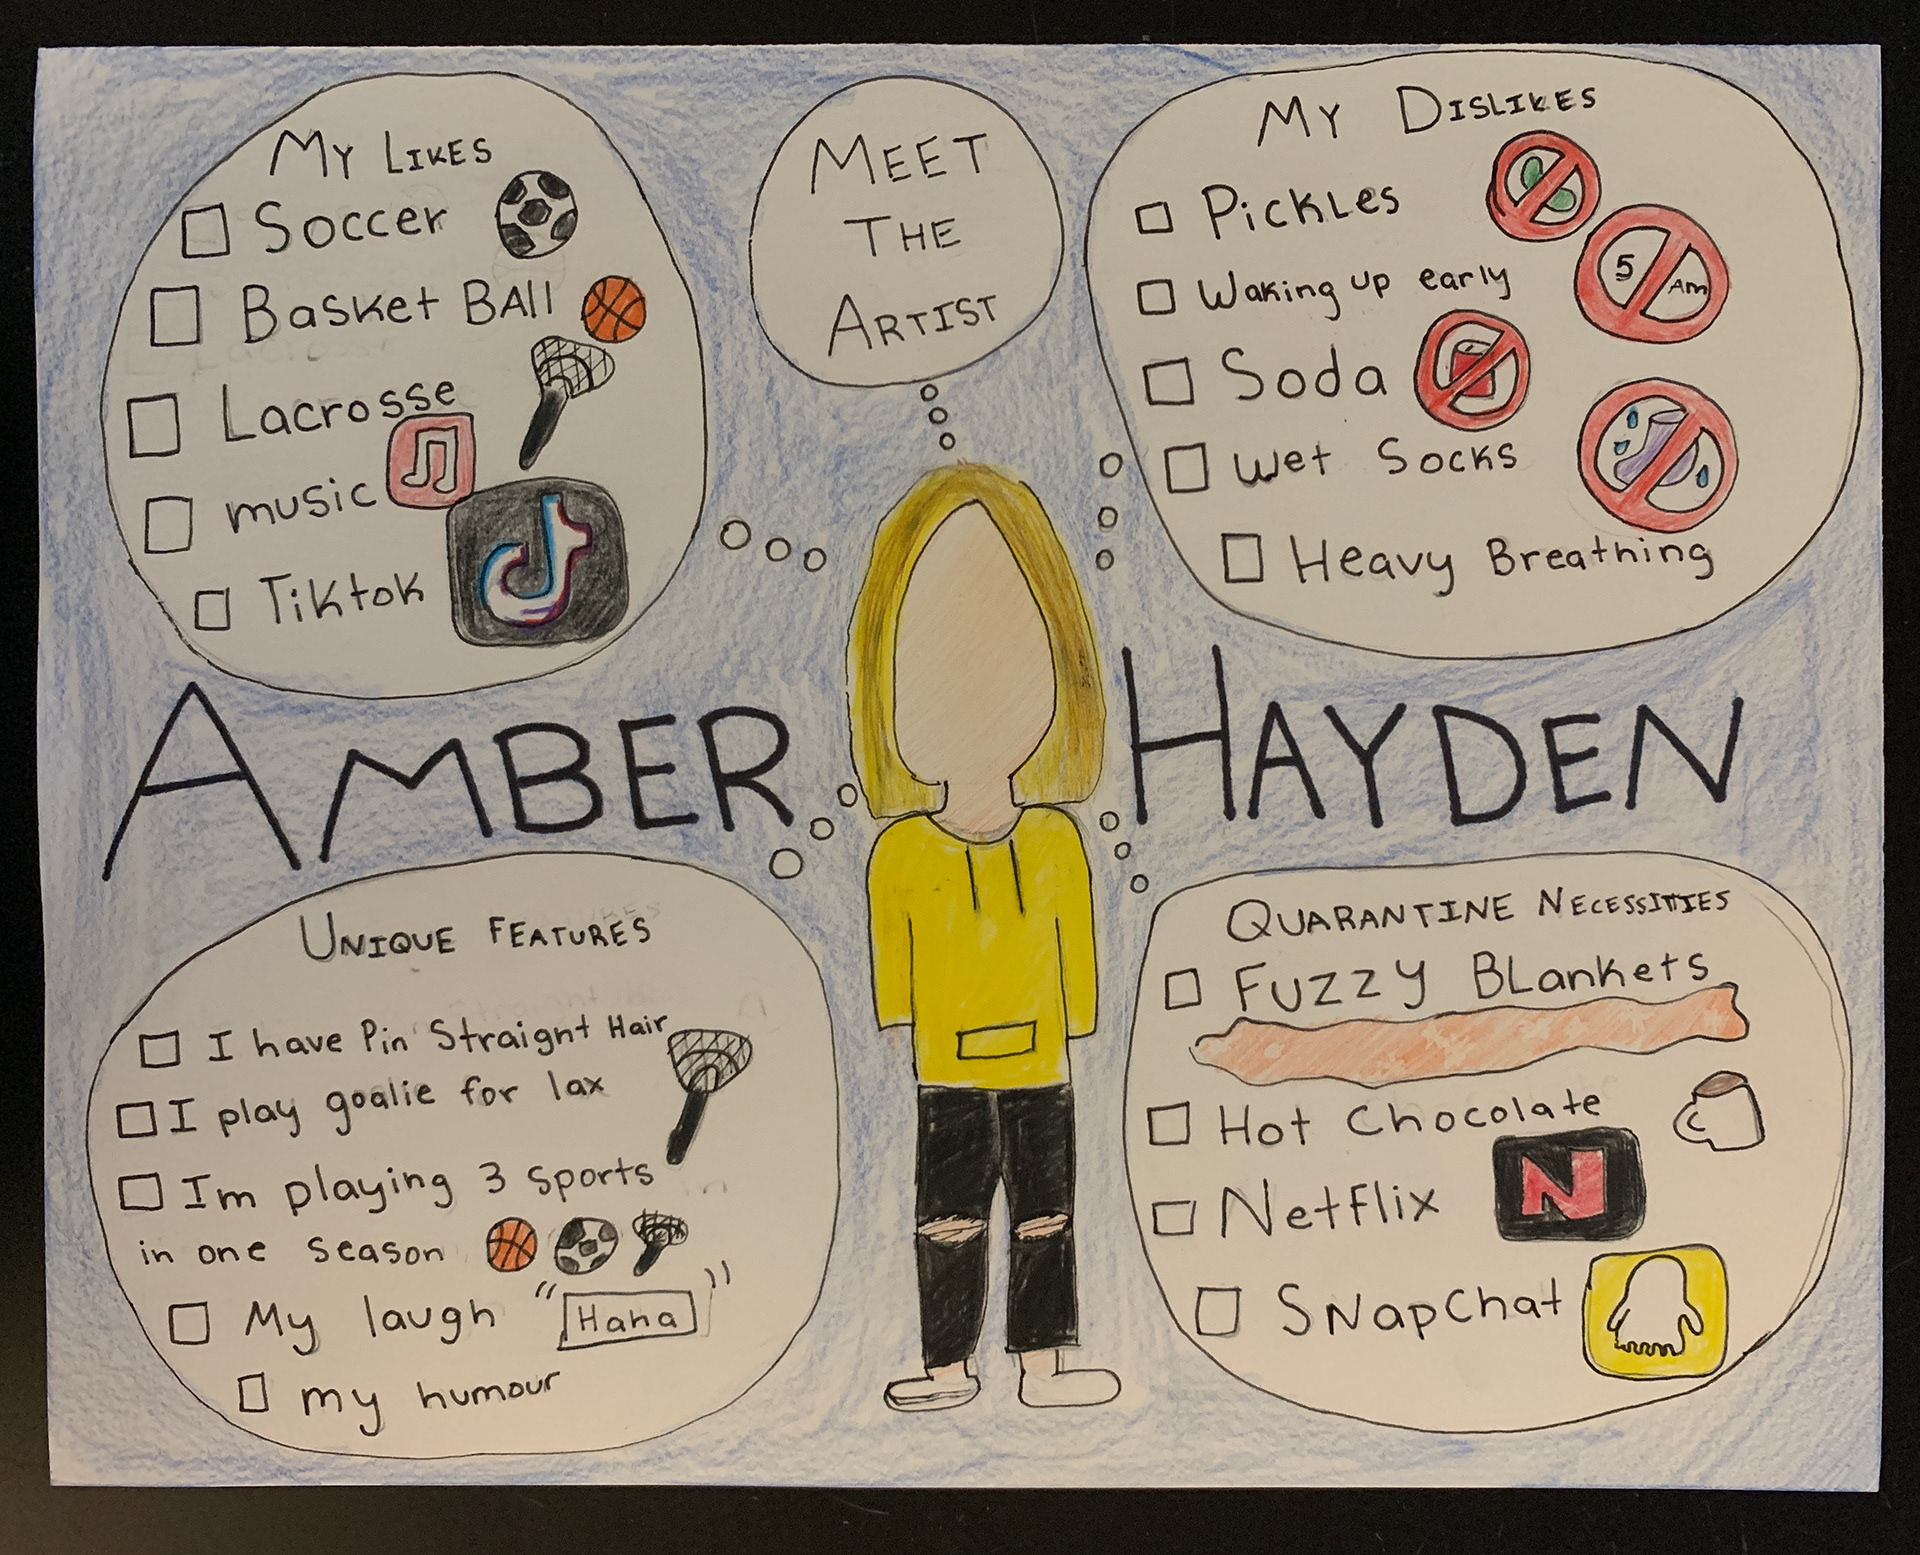 MEET
THE
ARTIST
MY LIKES
Soccer
Basket BAll
Lacrosse
music
Tiktok
MY DISLIKES
Pickles
5 Am
Waking up early
Soda
Wet Socks
Heavy Breathing
AMBER HAYDEN
UNIQUE FEATURES
I have Pin Straignt Hair
I play goalie for lax
Im playing 3 sports
in one season
My laugh "Haha"
my humour
QUARANTINE NECESSITIES
FUZZY BLankets
Hot Chocolate
Netflix
N
SNapChat